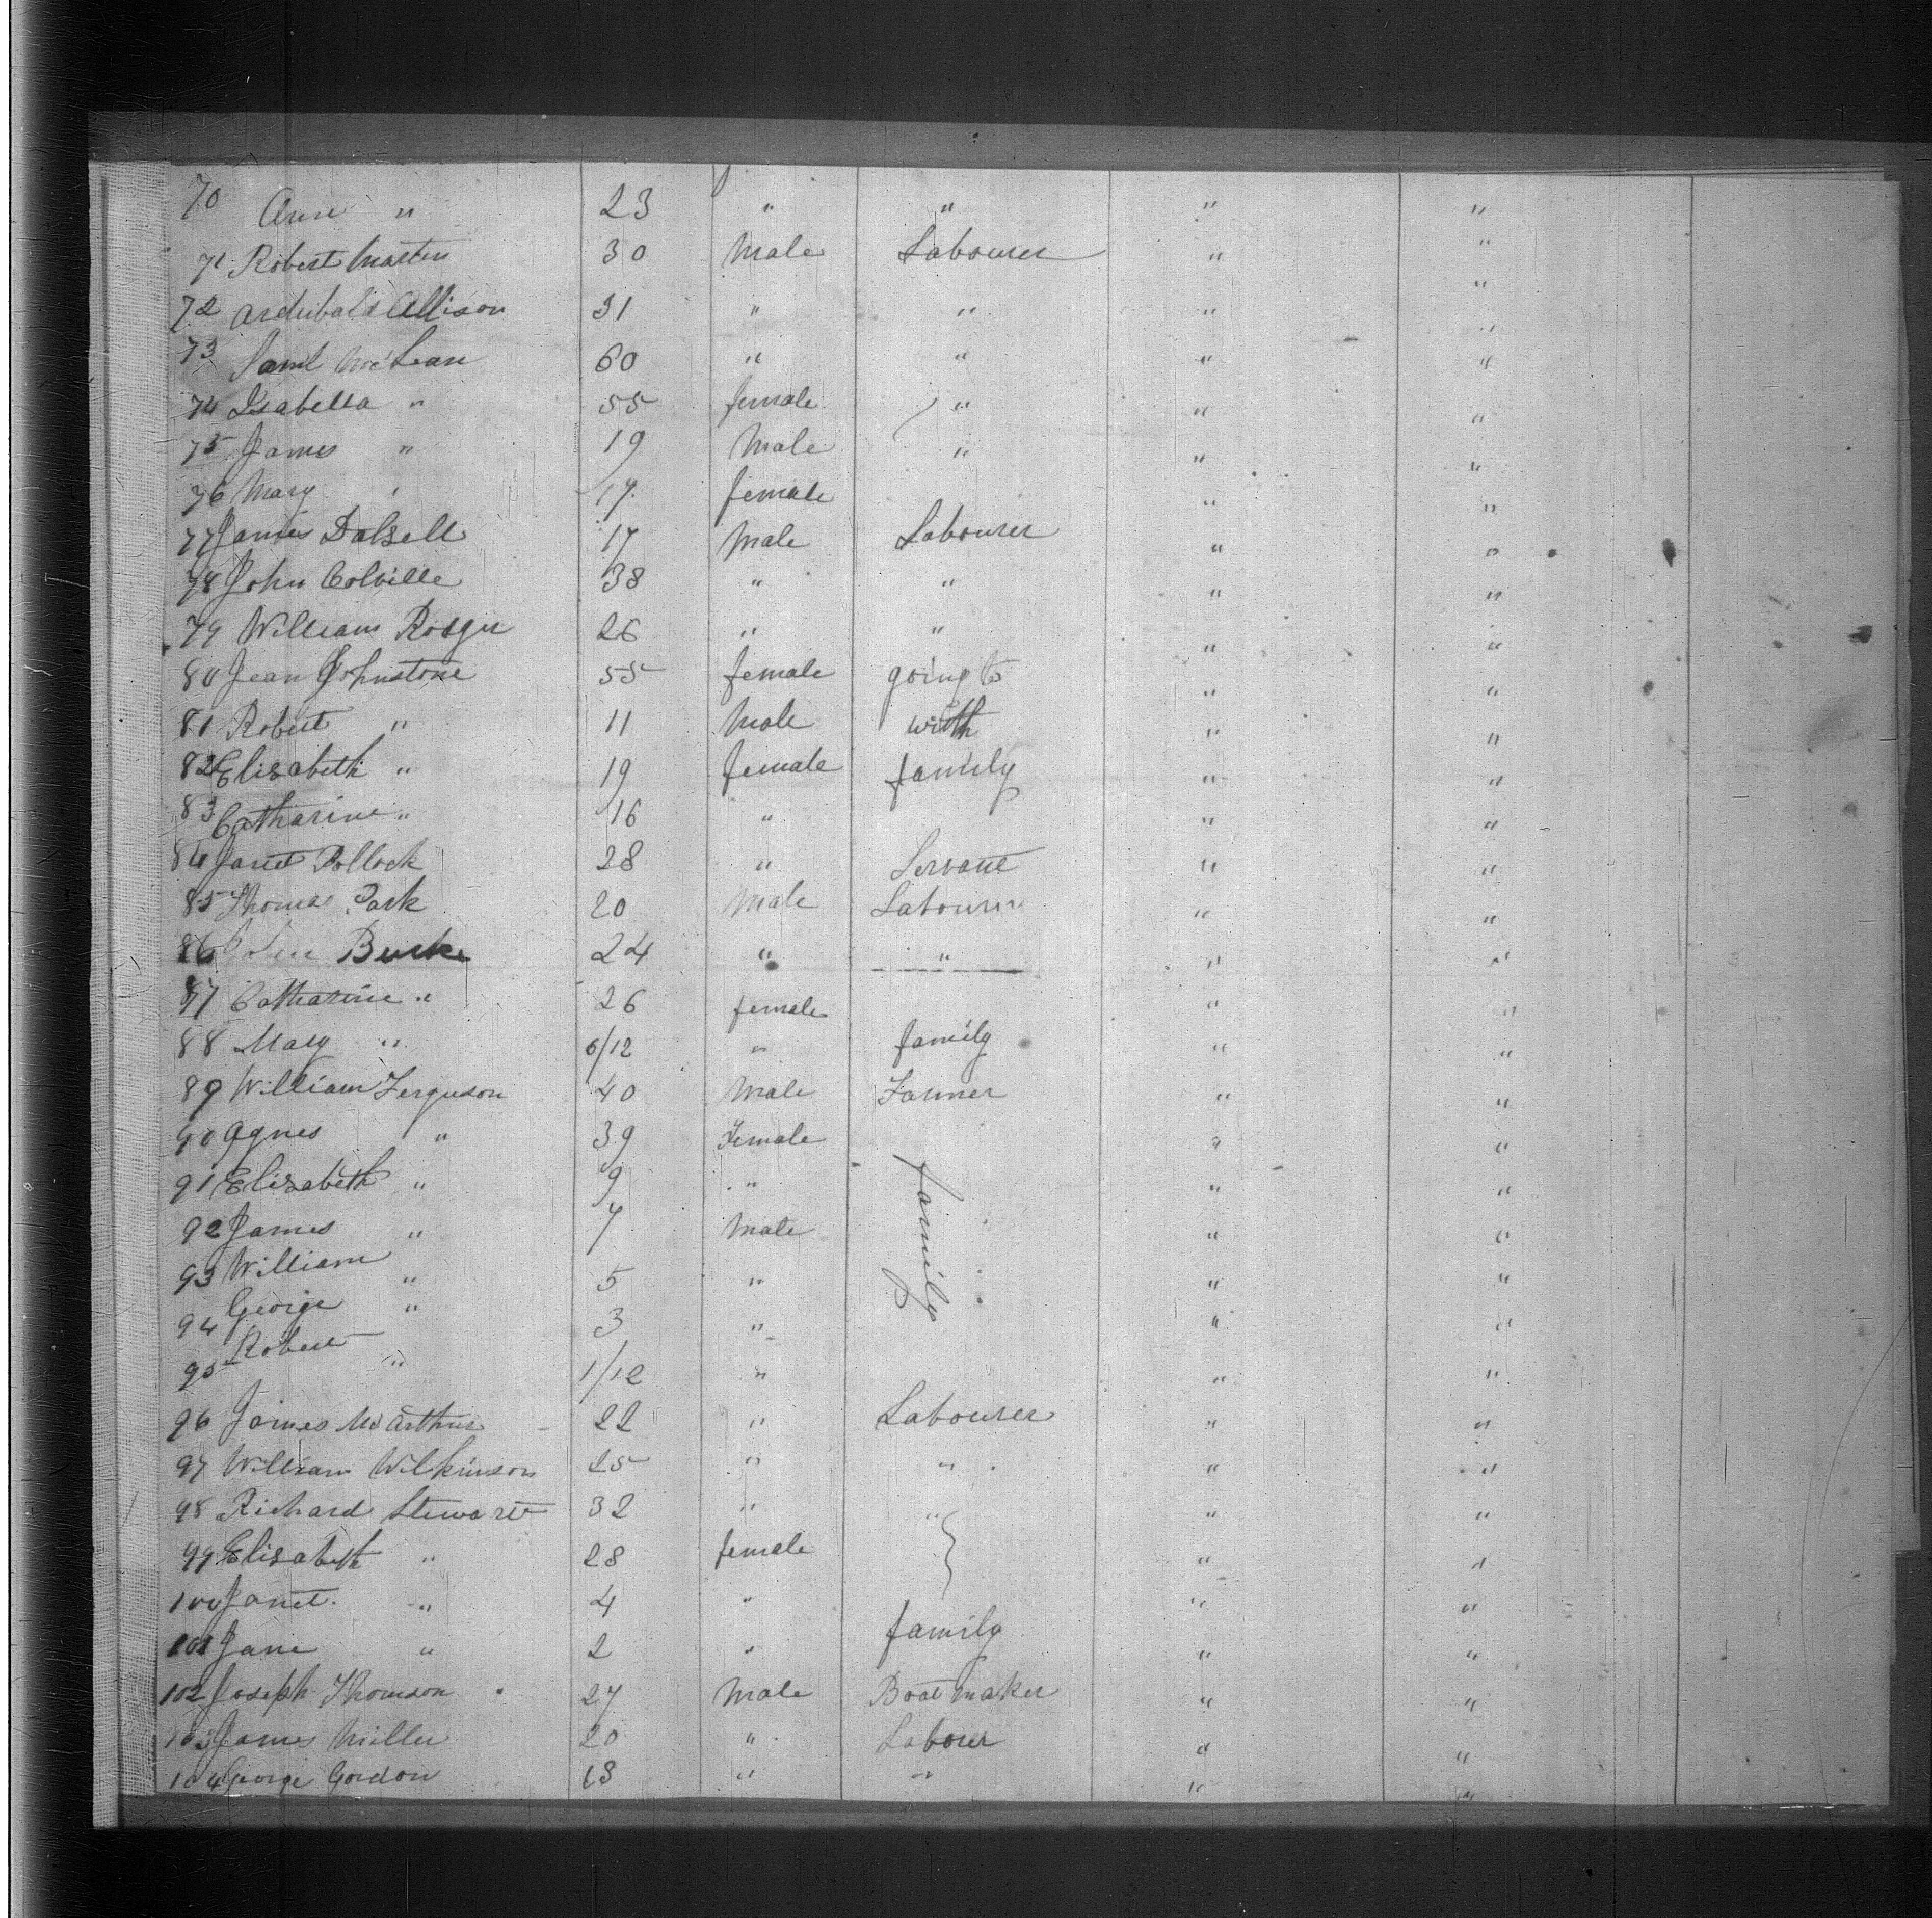 70 Ann " 23 " " " "
71 Robert Martin 30 Male Labourer " "
72 Archibald Allison 31 " " " "
73 Saml McLean 60 " " " "
74 Isabella " 55 female " " "
75 James " 19 Male " " "
76 Mary " 17 female " "
77 James Dalsell 17 Male Labourer " "
78 John Colville 38 " " " "
79 William 26 " " " "
80 Jean Johnstone 55 female going to " "
81 Robert " 11 Male with " "
82 Elisabeth " 19 female family " "
83 Catharine " 16 " " "
84 Janet Pollock 28 " Servant " "
85 Thomas Park 20 Male Labourer " "
86 Burke 24 " " " "
87 Catharine " 26 female " "
88 Mary " 6/12 " family " "
89 William Ferguson 40 Male Farmer " "
90 Agnes " 39 Female " "
91 Elisabeth " 9 " family " "
92 James " 7 Male " "
93 William " 5 " " "
94 George " 3 " " "
95 Robert " 1/12 " " "
96 James McArthur 22 " Labourer " "
97 William Wilkinson 25 " " " "
98 Richard Stewart 32 " " " "
99 Elisabeth " 28 female " "
100 Janet " 4 " " "
101 Jane " 2 " family " "
102 Joseph Thomson 27 Male Bootmaker " "
103 James Miller 20 " Labourer " "
104 George Gordon 18 " " " "